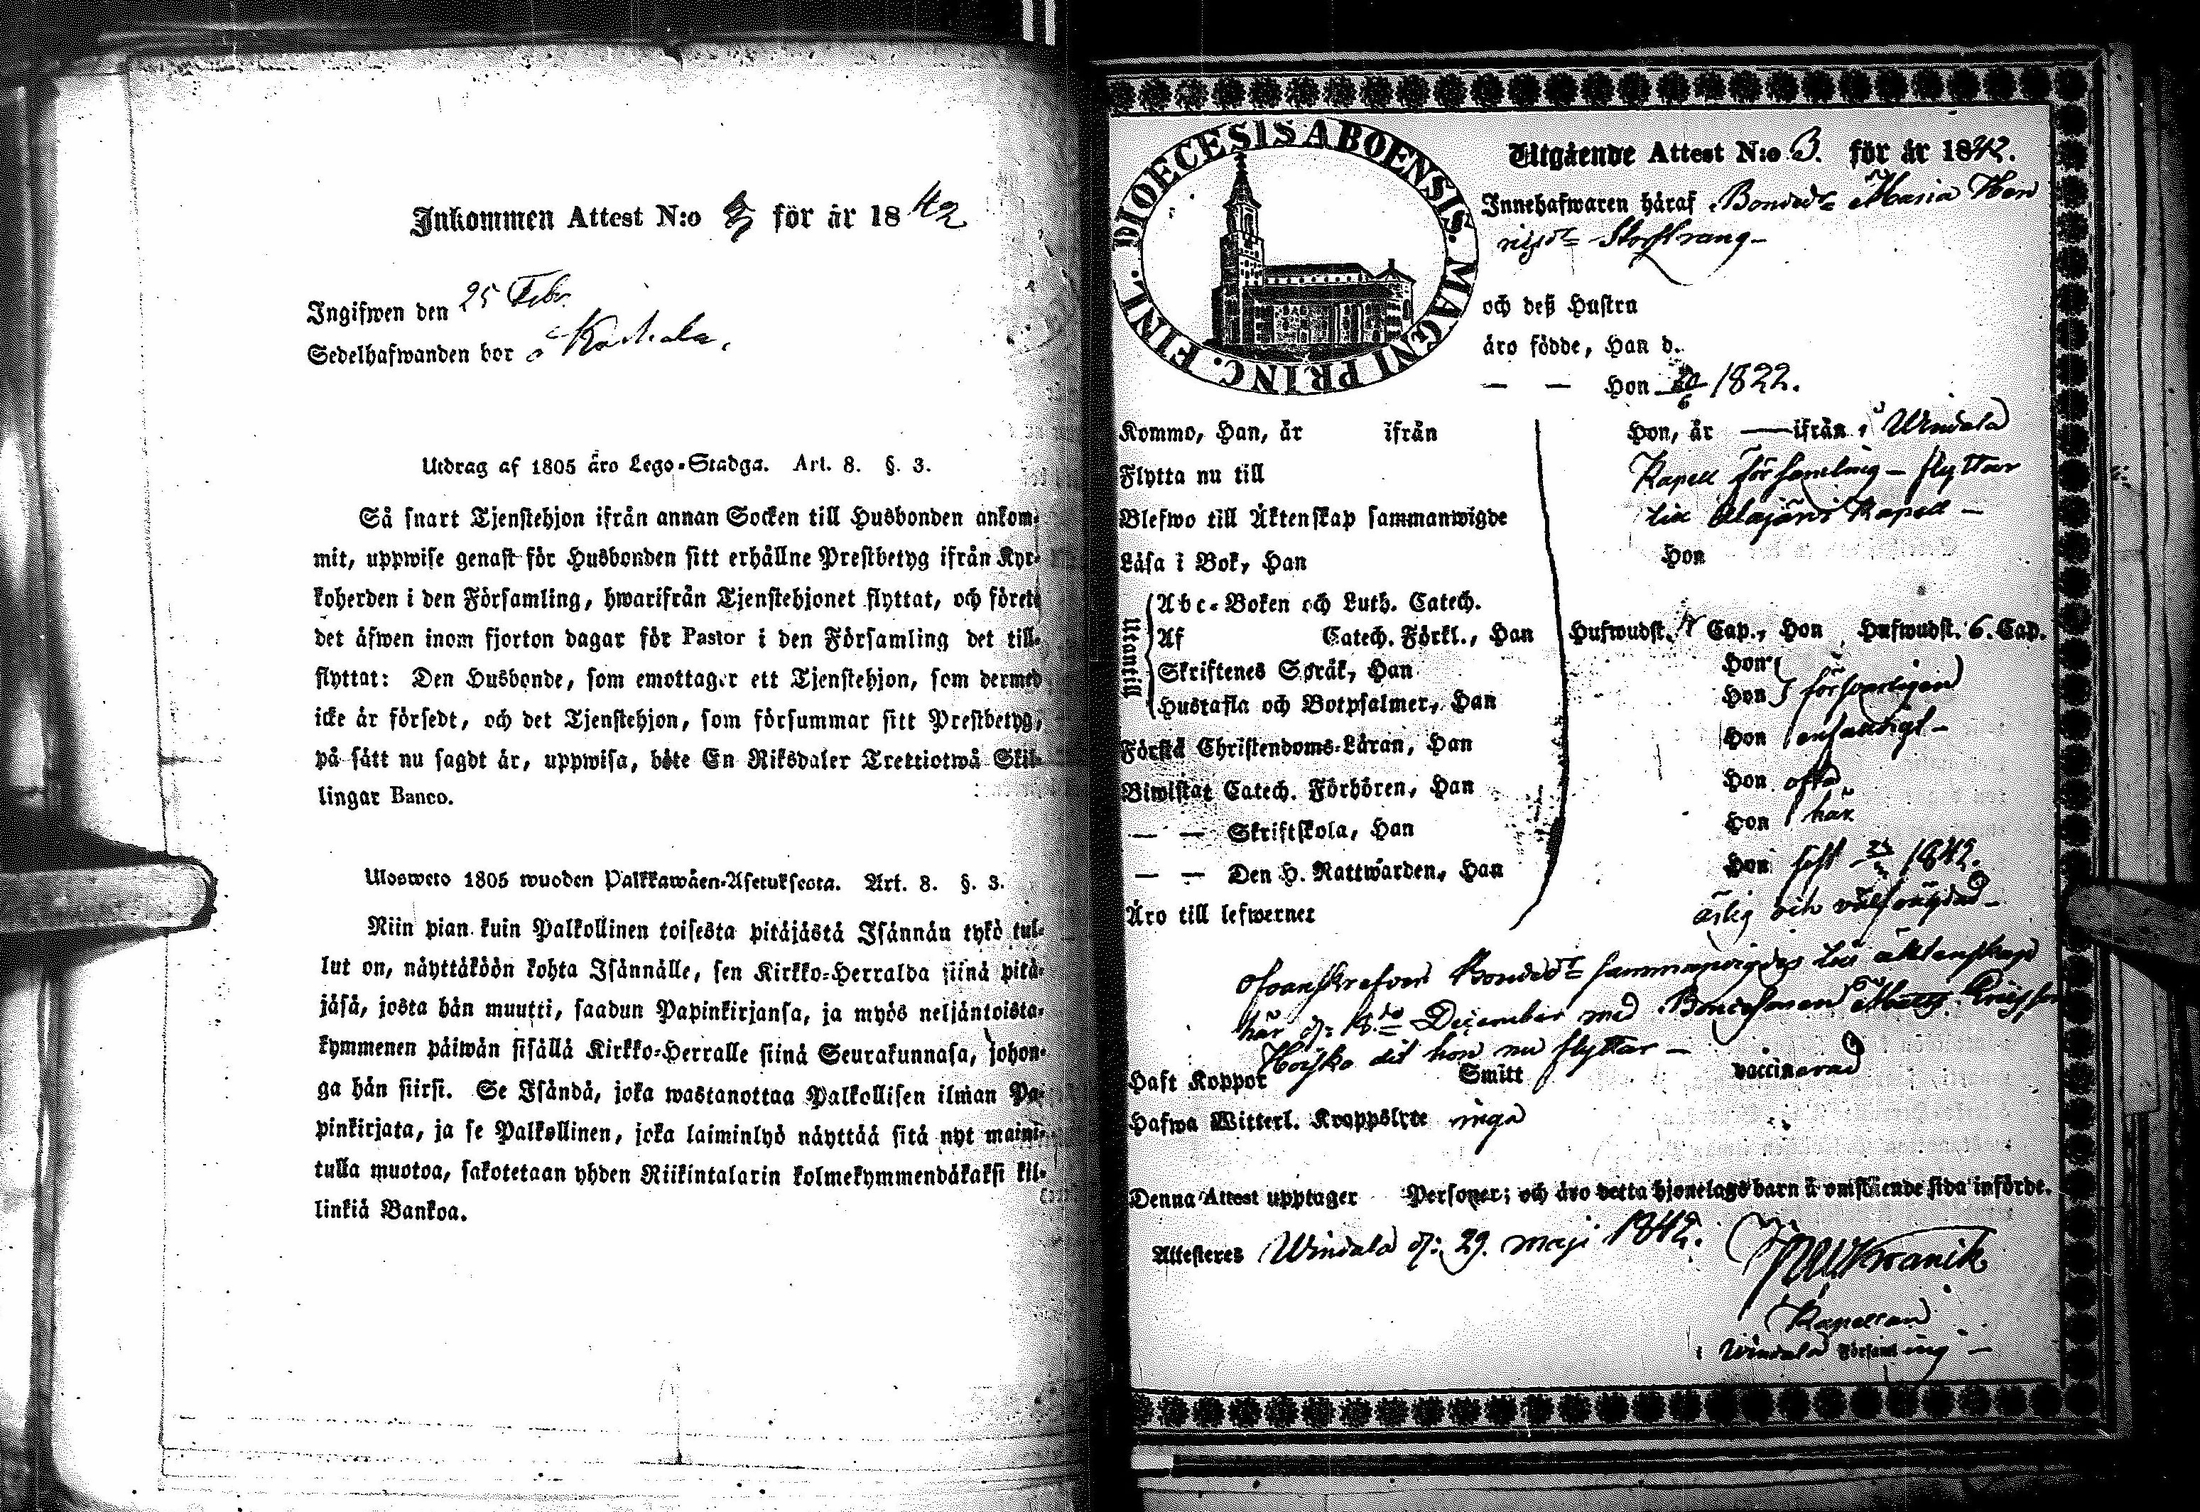 Inkommen Attest N:o för år 1842
Ingifwen den 25 Febr.
Sedelhafwanden bor å
Utdrag af 1805 åro Lego-Stadga. Art. 8. §. 3.
Så snart Tjenstehjon ifrån annan Socken till Husbonden ankom-
mit, uppwise genast för Husbonden sitt erhållne Prestbetyg ifrån Kyr-
koherden i den Församling, hwarifrån Tjenstehjonet flyttat, och förete
det äfwen inom fjorton dagar för Pastor i den Församling det till-
flyttat: Den Husbonde, som emottager ett Tjenstehjon, som dermed
icke är försedt, och det Tjenstehjon, som försummar sitt Prestbetyg,
på sätt nu sagdt är, uppwisa, böte En Riksdaler Trettiotwå Skil-
lingar Banco.
Ulosweto 1805 wuoden Palkkawäen-Asetuksesta. Art. 8. §. 3.
Niin pian kuin Palkollinen toisesta pitäjästä Isännän tykö tul-
lut on, näyttäköön kohta Isännälle, sen Kirkko-Herralda siinä pitä-
jäsä, josta hän muutti, saadun Papinkirjansa, ja myös neljäntoista-
kymmenen päiwän sisällä Kirkko-Herralle siinä Seurakunnasa, johon-
ga hän siirsi. Se Isändä, joka wastanottaa Palkollisen ilman Pa-
pinkirjata, ja se Palkollinen, joka laiminlyö näyttää sitä nyt maini-
tulla muotoa, sakotetaan yhden Riikintalarin kolmekymmendäkaksi kil-
linkiä Bankoa.
DIOECESIS ABOENSIS. MAGNI PRINC. FINL.
Utgående Attest N:o 3. för år 1842.
Innehafwaren häraf Bondedr Maria Hen
riksdr Storkrang-
och deß Hustru
äro födde, Han d.
— — Hon 20/6 1822.
Kommo, Han, år ifrån Hon, år — ifrån Windala
Flytta nu till Kapell församling - flyttar
Blefwo till Äktenskap sammanwigde till Alajärvi Kapell -
Läsa i Bok, Han Hon
Utantill
Abc-Boken och Luth. Catech.
Af Catech. Förkl., Han Hufwudst. Cap., Hon Hufwudst. 6. Cap.
Skriftenes Språk, Han Hon
Hustafla och Botpsalmer, Han Hon försvarligen
Förstå Christendoms-Läran, Han Hon enfaldigt -
Biwistat Catech. Förhören, Han Hon ofta
— — Skriftskola, Han Hon här
— — Den H. Nattwarden, Han Hon sist 1842.
Äro till lefwernet ärlig och välfrägdad -
Ofvanskrefven Bondedr sammanvigdes till äktenskap
här d: 18de December med Bondesonen Matts Ericsson
Hoisko dit hon nu flyttar -
Haft Koppor Smitt vaccinerad
Hafwa Witterl. Kroppslyte inga
Denna Attest upptager Personer; och äro detta hjonelags barn å omstående sida införde.
Attesteres Windala d: 29. maji 1842.
Kapellan
i Windala Församling -